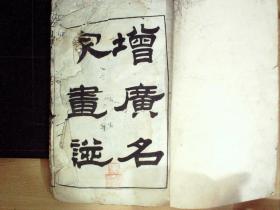 增廣名
家畫譜